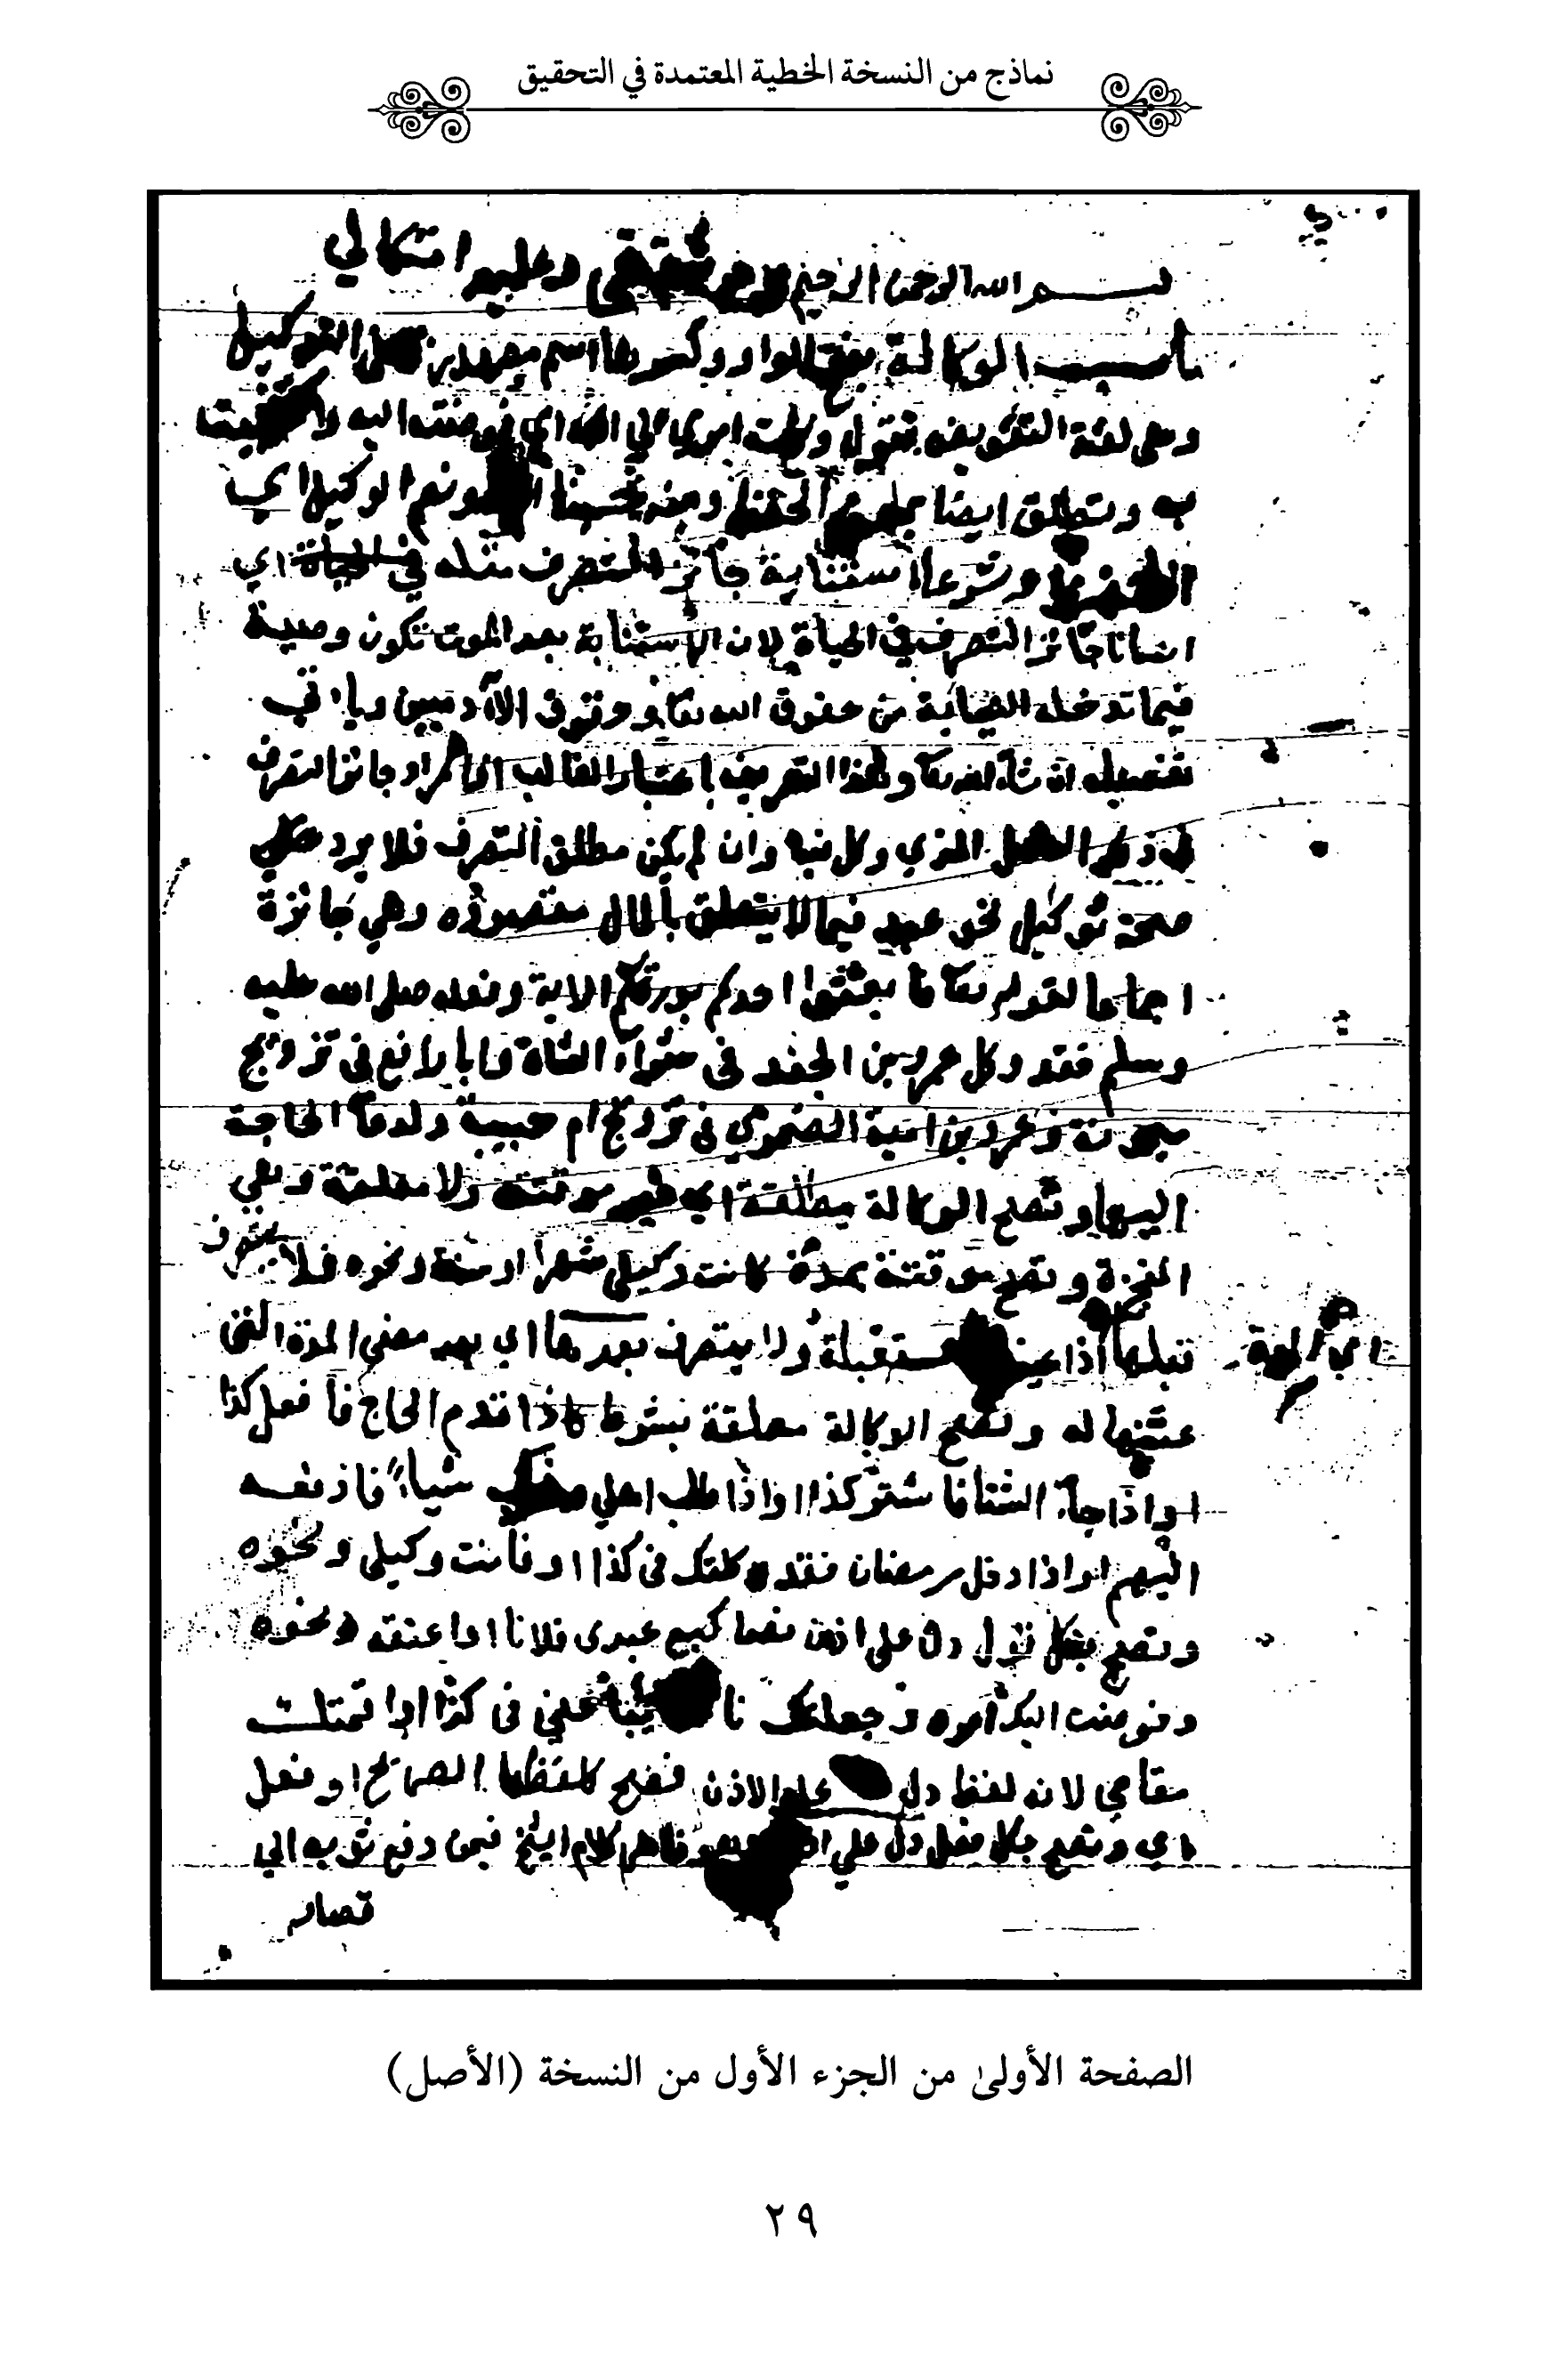 نماذج من النسخة الخطية المعتمدة في التحقيق
بسم الله الرحمن الرحيم وعليه اتكالي
باب الوكالة بفتح الواو وكسرها اسم مصدر التوكيل
وهي لغة التفويض تقول وكلت امري الي الله اي فوضته اليه واكتفيت
به وتطلق ايضا الحفظ ومنه حسبنا ونعم الوكيل اي
وشرعا استنابة جائز التصرف مثله في الحياة اي
انسانا جائز التصرف في الحياة لان الاستنابة بعد الموت تكون وصية
فيما تدخله النيابة من حقوق الله تعا وحقوق الآدميين وياتي
تفصيله ان شاء الله تعا وهذا التعريف باعتبار الغالب المراد جائز التصرف
في ذلك الذي وكل فيه وان لم يكن مطلق التصرف فلا يرد علي
صحة توكيل نحو عبد فيما لا يتعلق بالمال مقصوده وهي جائزة
اجماعا لقوله تعا فابعثوا احدكم بورقكم الاية وفعله صلى الله عليه
وسلم فقد وكل عروة بن الجعد في شراء الشاة وابا رافع في تزويج
ميمونة وعمرو بن امية الضمري في تزويج ام حبيبة ولدعا الحاجة
اليها وتصح الوكالة مطلقة اي غير موقتة ولا معلقة وهي
المنجزة وتصح موقتة بمدة كانت وكيلي شهرا او سنة ونحوه فلا يتصرف
قبلها اذا مستقبلة ولا يتصرف بعدها اي بعد مضي المدة التي
اي المدة
عينها له وتصح الوكالة معلقة بشرط كاذا قدم الحاج فافعل كذا
او اذا جاء الشتا فاشتر كذا او اذا طلب اهلي منك شيأ فادفعه
اليهم او اذا دخل رمضان فقد وكلتك في كذا او فانت وكيلي ونحوه
وتصح بكل قول دل على اذن نصا كبع عبدي فلانا او اعتقه ونحوه
وفوضت اليك امره وجعلتك نائبا عني في كذا او اقمتك
مقامي لانه لفظ دل على الاذن فصح كلفظها الصريح او فعل
اي وتصح بكل فعل دل علي وهو ظاهر كلام الشيخ فيمن دفع ثوبه الي
قصار
الصفحة الأولى من الجزء الأول من النسخة (الأصل)
٢٩